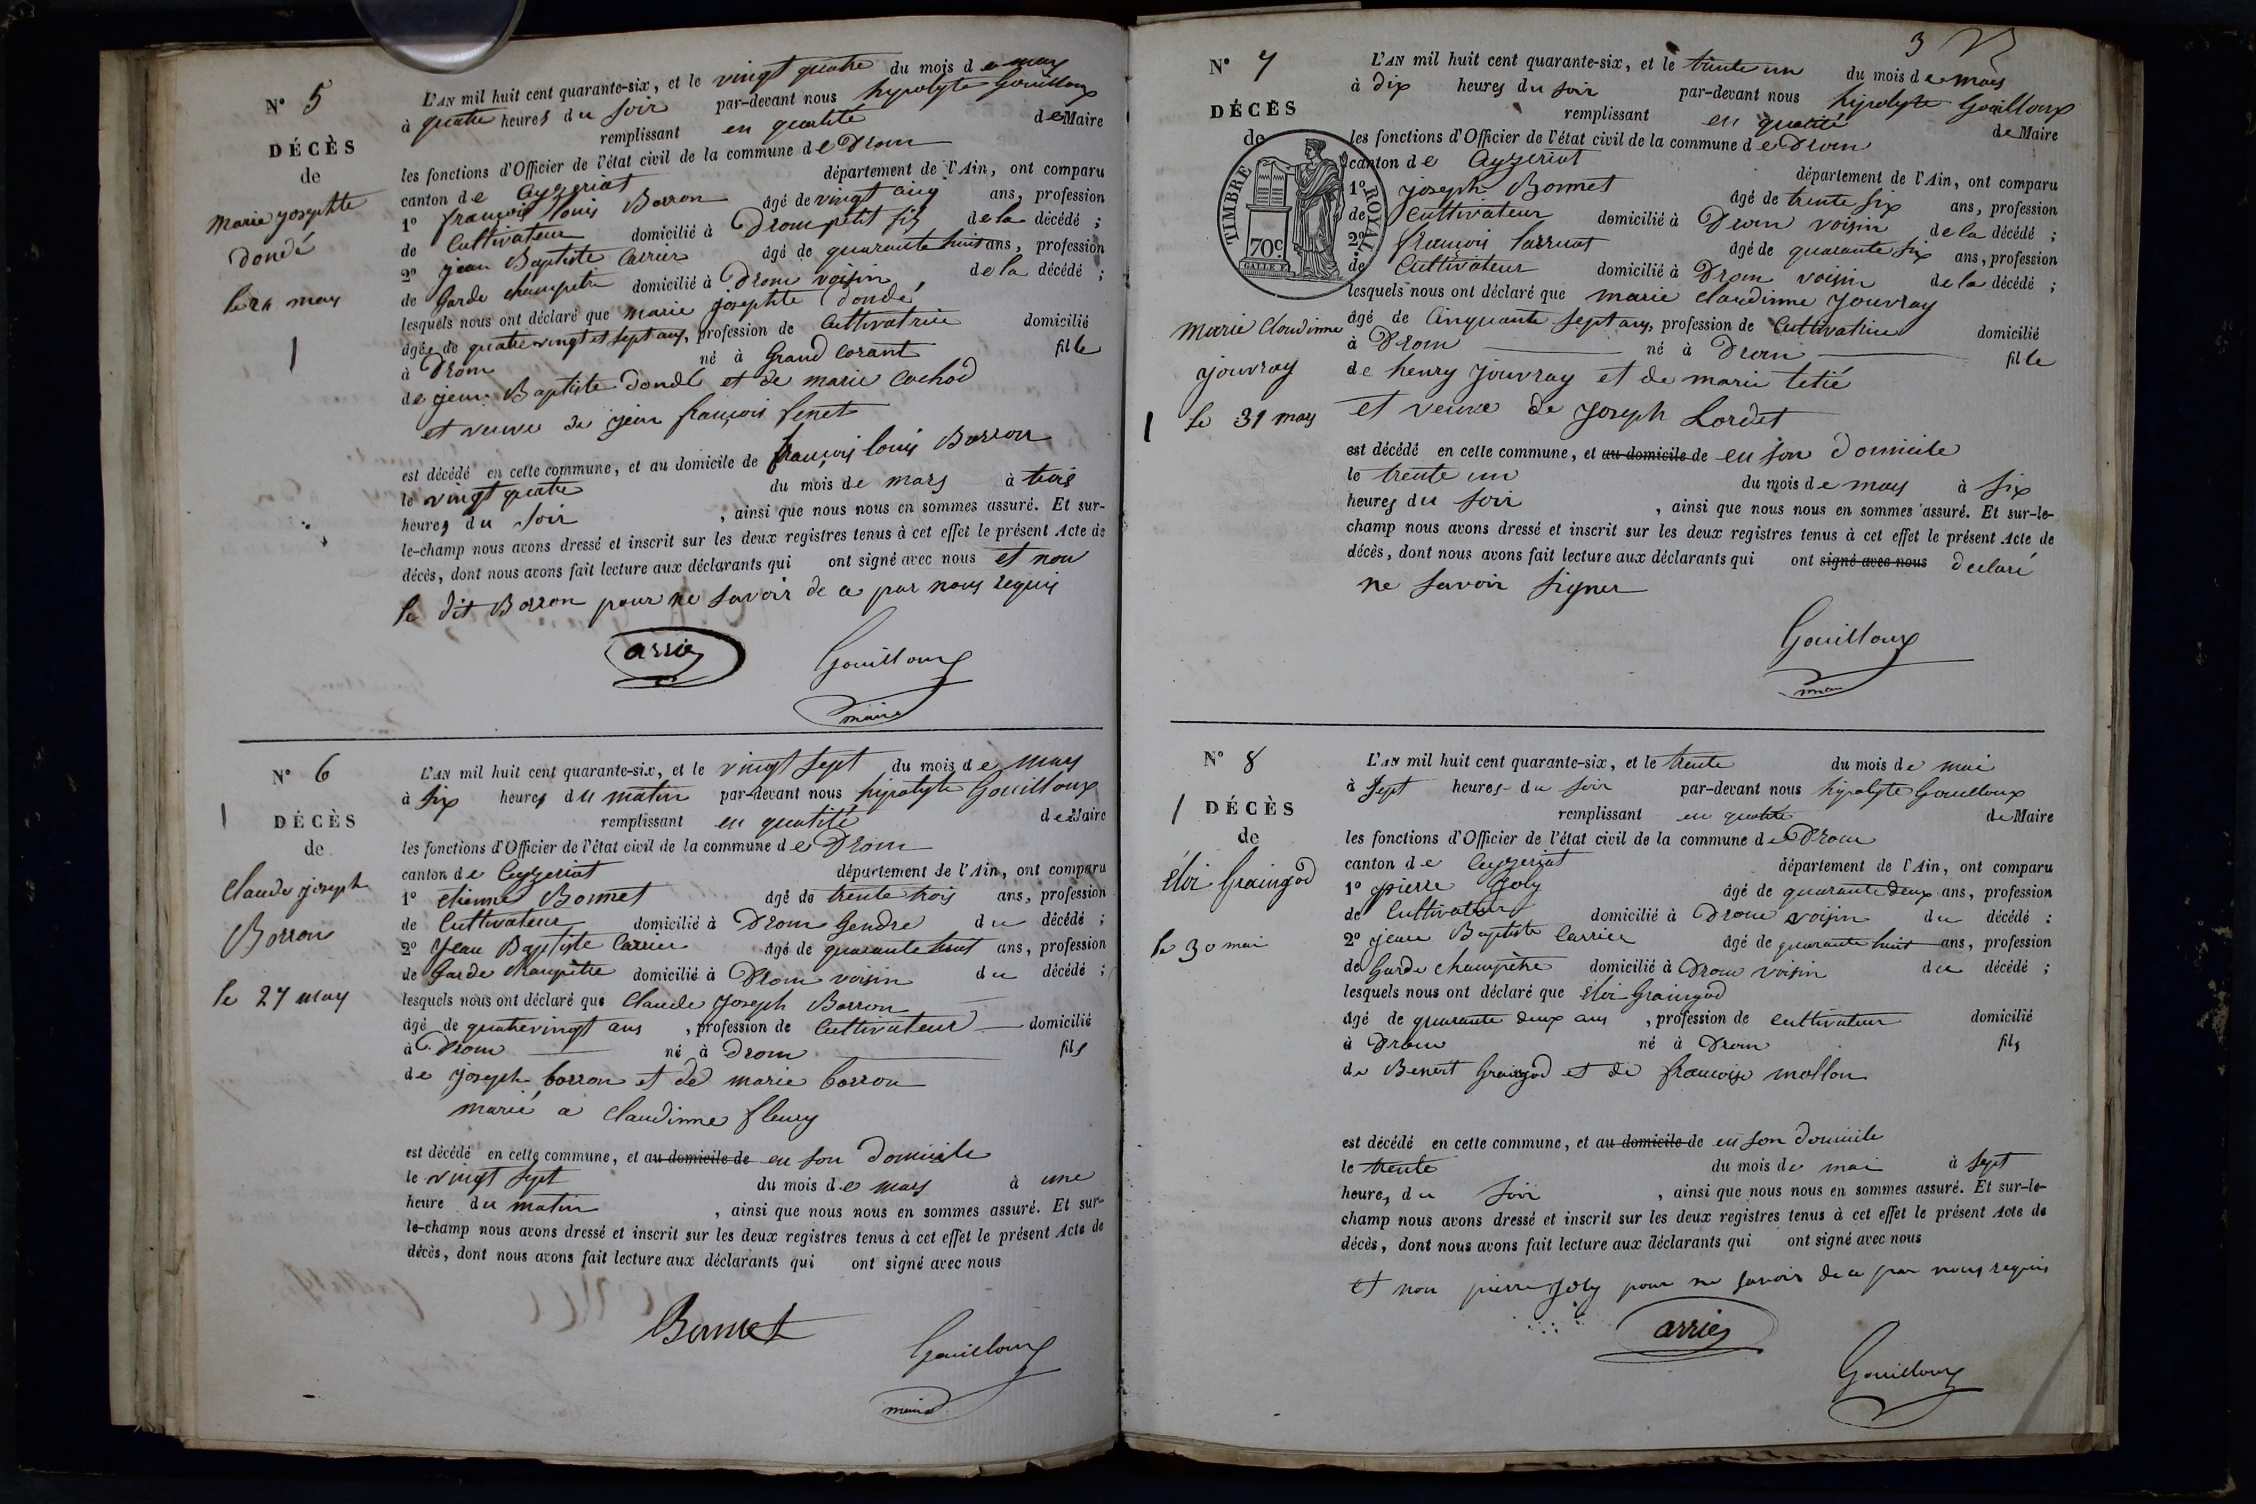 N° 5
DÉCÈS
de
Marie josephte
dondé
le 24 mars
L'AN mil huit cent quarante-six, et le vingt quatre du mois de mars
à quatre heures du soir par-devant nous hypolyte Gouilloux
remplissant en qualité de Maire
les fonctions d'Officier de l'état civil de la commune de Drom
canton de Ceyzeriat département de l'Ain, ont comparu
1° françois louis Borron âgé de vingt cinq ans, profession
de Cultivateur domicilié à Drom petit fils de la décédé ;
2° jean Baptiste Carrier âgé de quarante huit ans, profession
de Garde champetre domicilié à Drom voisin de la décédé ;
lesquels nous ont déclaré que marie josephte dondé
âgée de quatrevingt et sept ans, profession de Cultivatrice domicilié
à Drom né à Grand Corant fille
de jean Baptiste dondé et de marie cochod
et veuve de jean françois fenet
est décédé en cette commune, et au domicile de françois louis Borron
le vingt quatre du mois de mars à trois
heures du soir , ainsi que nous nous en sommes assuré. Et sur-
le-champ nous avons dressé et inscrit sur les deux registres tenus à cet effet le présent Acte de
décès, dont nous avons fait lecture aux déclarants qui ont signé avec nous et non
le dit Borron pour ne savoir de ce par nous requis
arrier Gouilloux
maire
N° 6
DÉCÈS
de
Claude joseph
Borron
le 27 mars
L'AN mil huit cent quarante-six, et le vingt sept du mois de mars
à six heures du matin par-devant nous hipolyte Gouilloux
remplissant en qualité de Maire
les fonctions d'Officier de l'état civil de la commune de Drom
canton de Ceyzeriat département de l'Ain, ont comparu
1° etienne Bonnet âgé de trente trois ans, profession
de Cultivateur domicilié à Drom Gendre du décédé ;
2° Jean Baptiste Carrier âgé de quarante huit ans, profession
de Garde champêtre domicilié à Drom voisin du décédé ;
lesquels nous ont déclaré que Claude Joseph Borron
âgé de quatrevingt ans , profession de Cultivateur domicilié
à Drom né à Drom fils
de joseph borron et de marie borron
marié a Claudinne fleury
est décédé en cette commune, et au domicile de en son domicile
le vingt sept du mois de mars à une
heure du matin , ainsi que nous nous en sommes assuré. Et sur-
le-champ nous avons dressé et inscrit sur les deux registres tenus à cet effet le présent Acte de
décès, dont nous avons fait lecture aux déclarants qui ont signé avec nous
Bonnet Gouilloux
maire
3
N° 7
DÉCÈS
de
TIMBRE ROYAL
70 c.
Marie Claudinne
jouvray
le 31 mars
L'AN mil huit cent quarante-six, et le trente un du mois de mars
à dix heures du soir par-devant nous hipolyte Gouilloux
remplissant en qualité de Maire
les fonctions d'Officier de l'état civil de la commune de Drom
canton de Ceyzeriat département de l'Ain, ont comparu
1° joseph Bonnet âgé de trente six ans, profession
de Cultivateur domicilié à Drom voisin de la décédé ;
2° françois âgé de quarante six ans, profession
de Cultivateur domicilié à Drom voisin de la décédé ;
lesquels nous ont déclaré que marie claudinne jouvray
âgé de Cinquante sept ans, profession de Cultivatrice domicilié
à Drom né à Drom fille
de henry jouvray et de marie tetié
et veuve de joseph Lordet
est décédé en cette commune, et au domicile de en son domicile
le trente un du mois de mars à six
heures du soir , ainsi que nous nous en sommes assuré. Et sur-le-
champ nous avons dressé et inscrit sur les deux registres tenus à cet effet le présent Acte de
décès, dont nous avons fait lecture aux déclarants qui ont signé avec nous declaré
ne savoir signer
Gouilloux
maire
N° 8
DÉCÈS
de
éloi Graingod
le 30 mai
L'AN mil huit cent quarante-six, et le trente du mois de mai
à sept heures du soir par-devant nous hipolyte Gouilloux
remplissant en qualité de Maire
les fonctions d'Officier de l'état civil de la commune de Drom
canton de Ceyzeriat département de l'Ain, ont comparu
1° pierre Joly âgé de quarante deux ans, profession
de Cultivateur domicilié à Drom voisin du décédé ;
2° jean Baptiste Carrier âgé de quarante huit ans, profession
de Garde champêtre domicilié à Drom voisin du décédé ;
lesquels nous ont déclaré que éloi Graingod
âgé de quarante deux ans , profession de cultivateur domicilié
à Drom né à Drom fils
de Benoit Graingod et de françoise mollon
est décédé en cette commune, et au domicile de en son domicile
le trente du mois de mai à sept
heures du soir , ainsi que nous nous en sommes assuré. Et sur-le-
champ nous avons dressé et inscrit sur les deux registres tenus à cet effet le présent Acte de
décès, dont nous avons fait lecture aux déclarants qui ont signé avec nous
et non pierre Joly pour ne savoir de ce par nous requis
arrier
Gouilloux